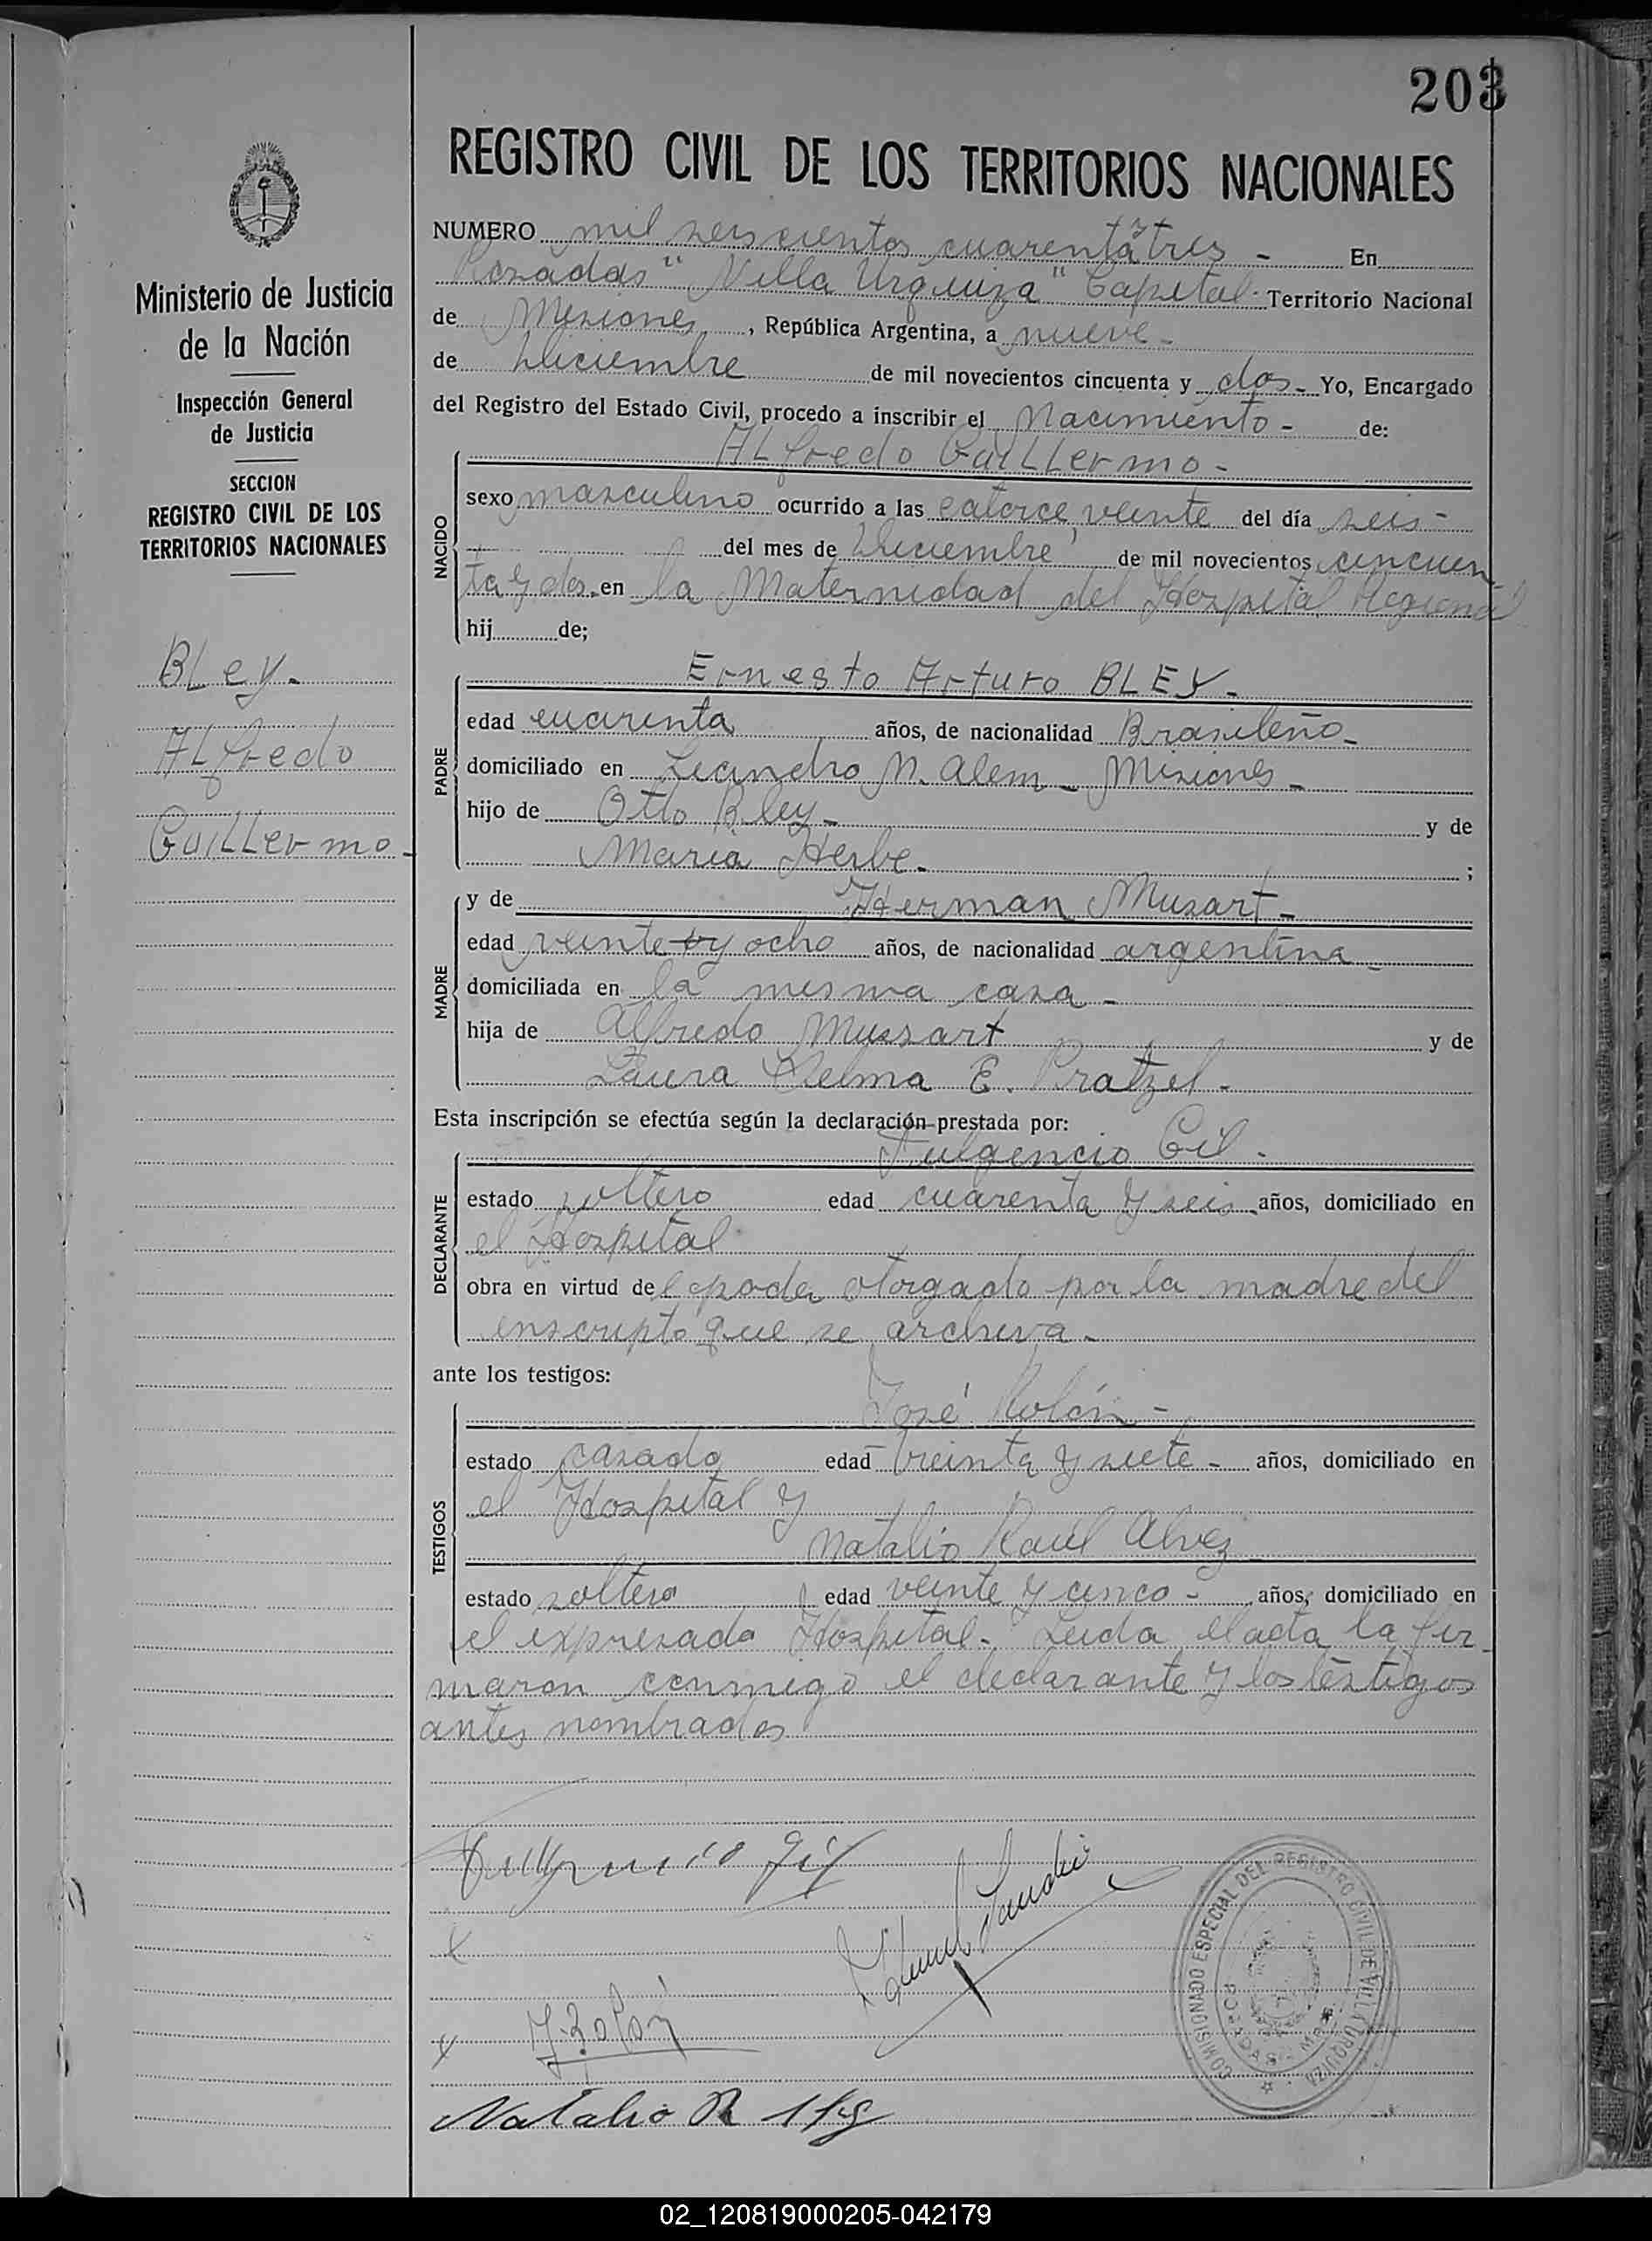 203
REGISTRO CIVIL DE LOS TERRITORIOS NACIONALES
Ministerio de Justicia
de la Nación
Inspección General
de Justicia
SECCION
REGISTRO CIVIL DE LOS
TERRITORIOS NACIONALES
BLey.
ALfredo
GuiLLermo-
NUMERO mil seiscientos cuarenta y tres - En
Posadas "Villa Urquiza" Capital. Territorio Nacional
de Misiones, República Argentina, a nueve -
de Diciembre de mil novecientos cincuenta y dos - Yo, Encargado
del Registro del Estado Civil, procedo a inscribir el Nacimiento - de:
NACIDO
ALfredo GuiLLermo -
sexo masculino ocurrido a las catorce, veinte del día seis -
del mes de Diciembre de mil novecientos cincuen
ta y dos. en la Maternidad del Hospital Regional
hij de;
PADRE
Ernesto Arturo BLEY -
edad cuarenta años, de nacionalidad Brasileño -
domiciliado en Leandro N. Alem - Misiones -
hijo de Otto Bley - y de
Maria Herbe - ;
MADRE
y de Herman Musart -
edad veinte y ocho años, de nacionalidad argentina -
domiciliada en la misma casa -
hija de Alfredo Mussart y de
Laura Selma E. Pratzel -
Esta inscripción se efectúa según la declaración prestada por:
DECLARANTE
Fulgencio Gil -
estado soltero edad cuarenta y seis años, domiciliado en
el Hospital
obra en virtud del poder otorgado por la madre del
inscripto que se archiva -
ante los testigos:
TESTIGOS
José Rolón -
estado casado edad treinta y siete - años, domiciliado en
el Hospital y
Natalio Raul Alvez
estado soltero edad veinte y cinco - años, domiciliado en
el expresado Hospital - Leida el acta la fir
maron conmigo el declarante y los testigos
antes nombrados
Fulgencio Gil
J. Rolón
Natalio R
COMISIONADO ESPECIAL DEL REGISTRO CIVIL DE VILLA URQUIZA
POSADAS
02_120819000205-042179